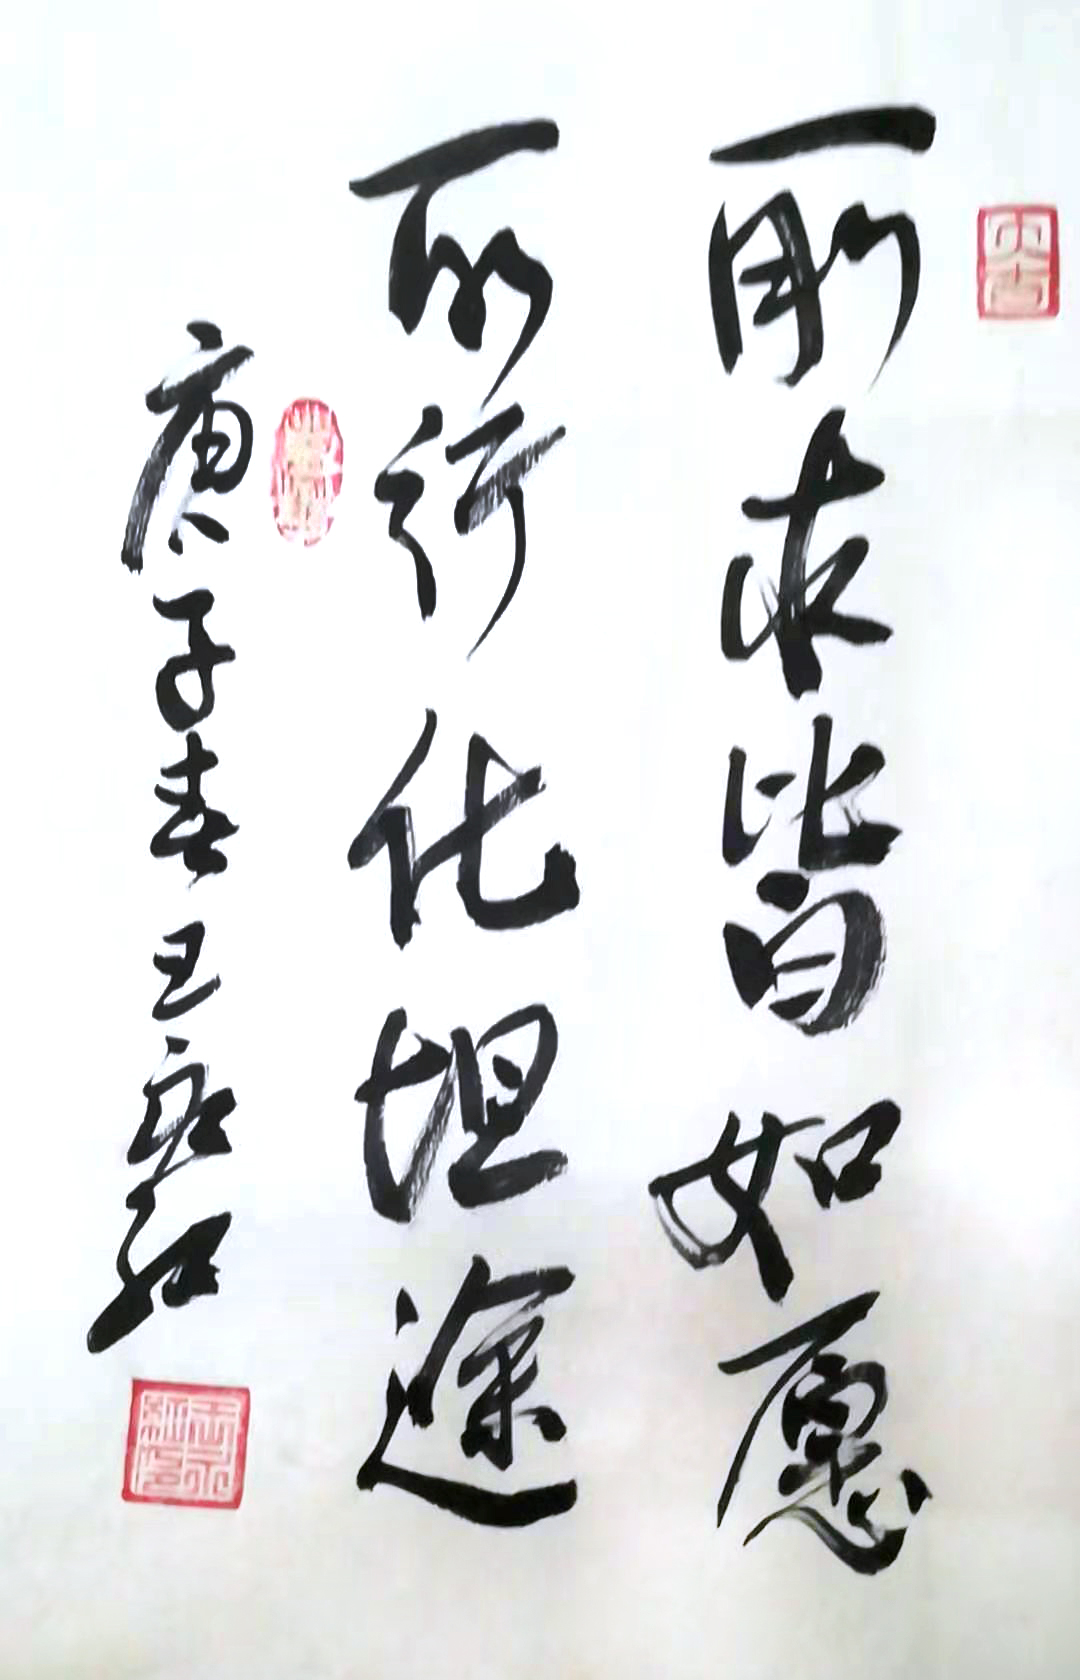 所求皆如愿
所行化坦途
庚子春王永红
大吉